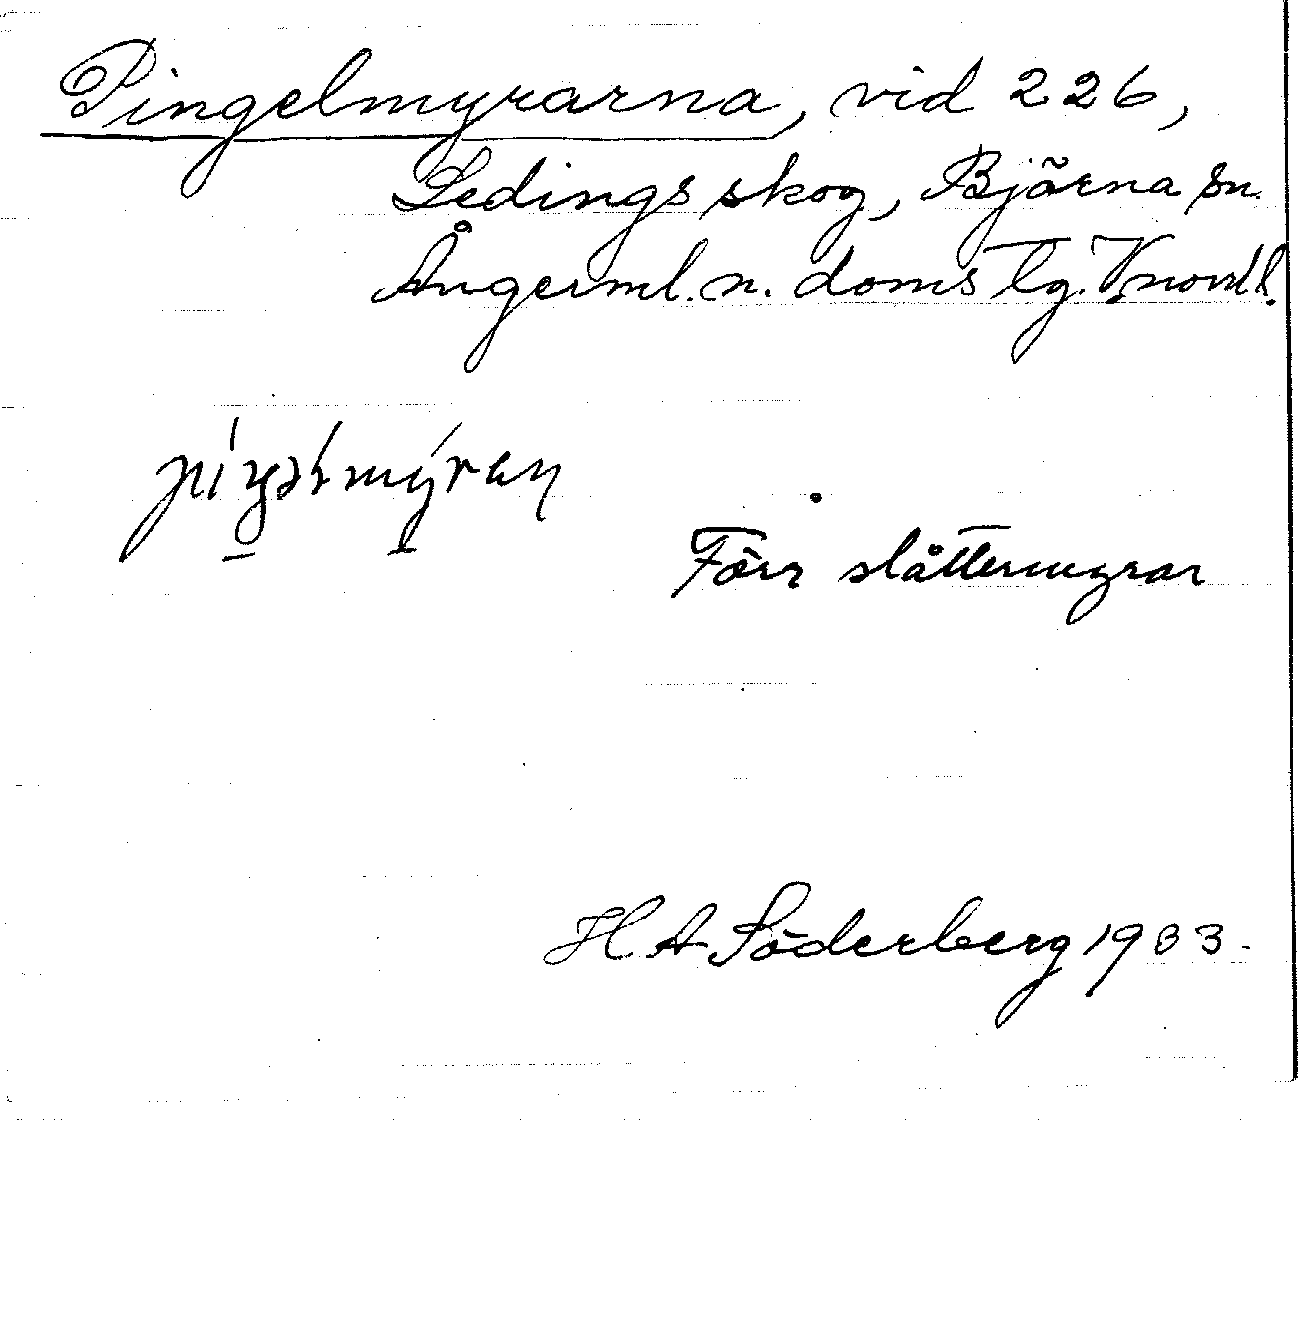 Pingelmyrarna, vid 226,
Ledings skog, Björna sn.
Ångerml. n. doms lg. V.norrl.
Förr slåttermyrar
H A Söderberg 1933.